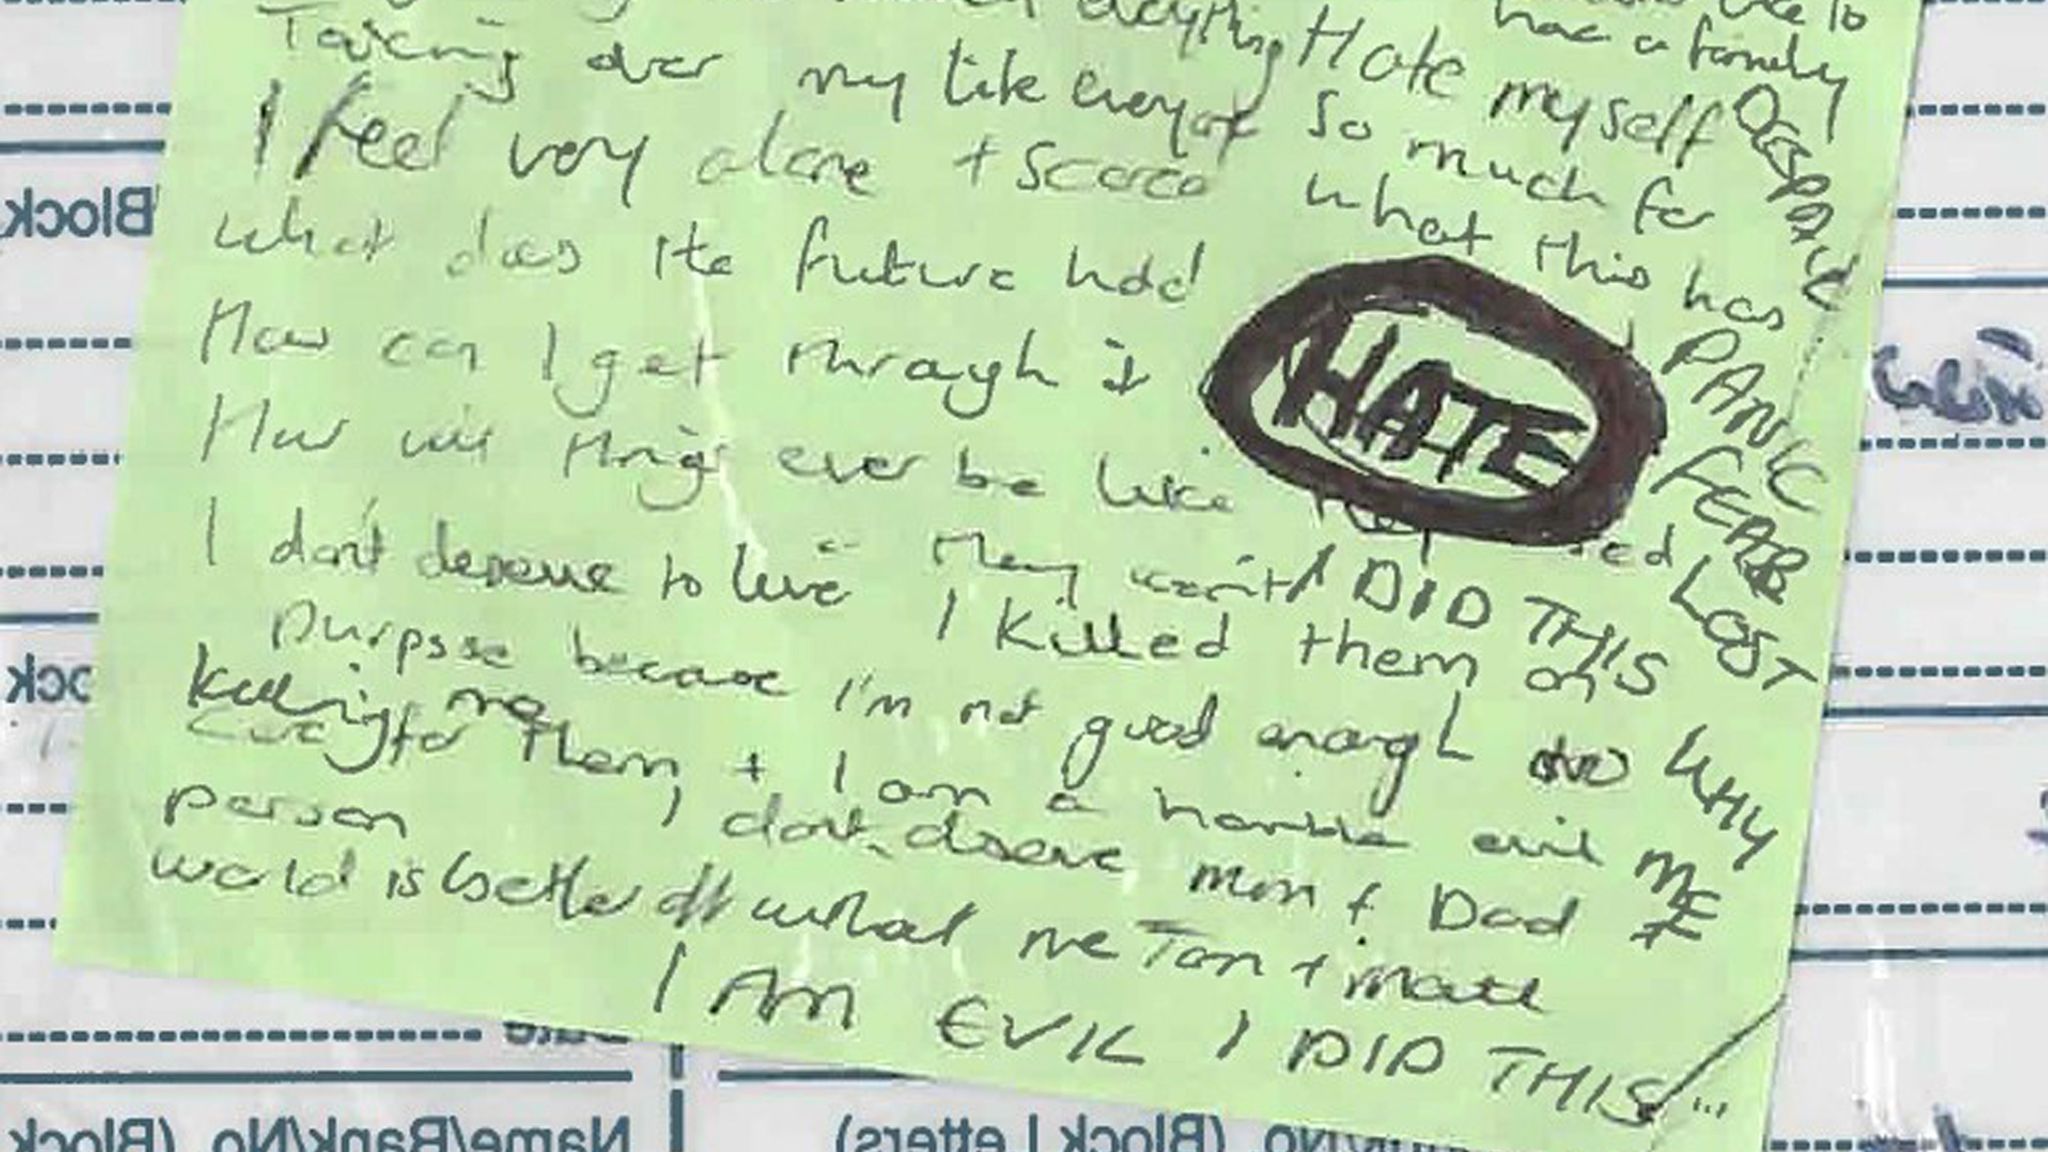 everything Hate myself
had a family
Taking over my life everyone so much for
DESPAIR
I feel very alone + scared what this has
what does the future hold
HATE
PANIC
How can I get through it
FEAR
How will things ever be like
LOST
I don't deserve to live They won't I DID THIS
I killed them on
purpose because I'm not good enough
WHY
ME
killing me
care for them + I am a horrible evil
person I dont deserve mum + Dad
world is better off without me Tom + matt
I AM EVIL I DID THIS
Block
Date
Name/Bank/No. (Block
No. (Block Letters)